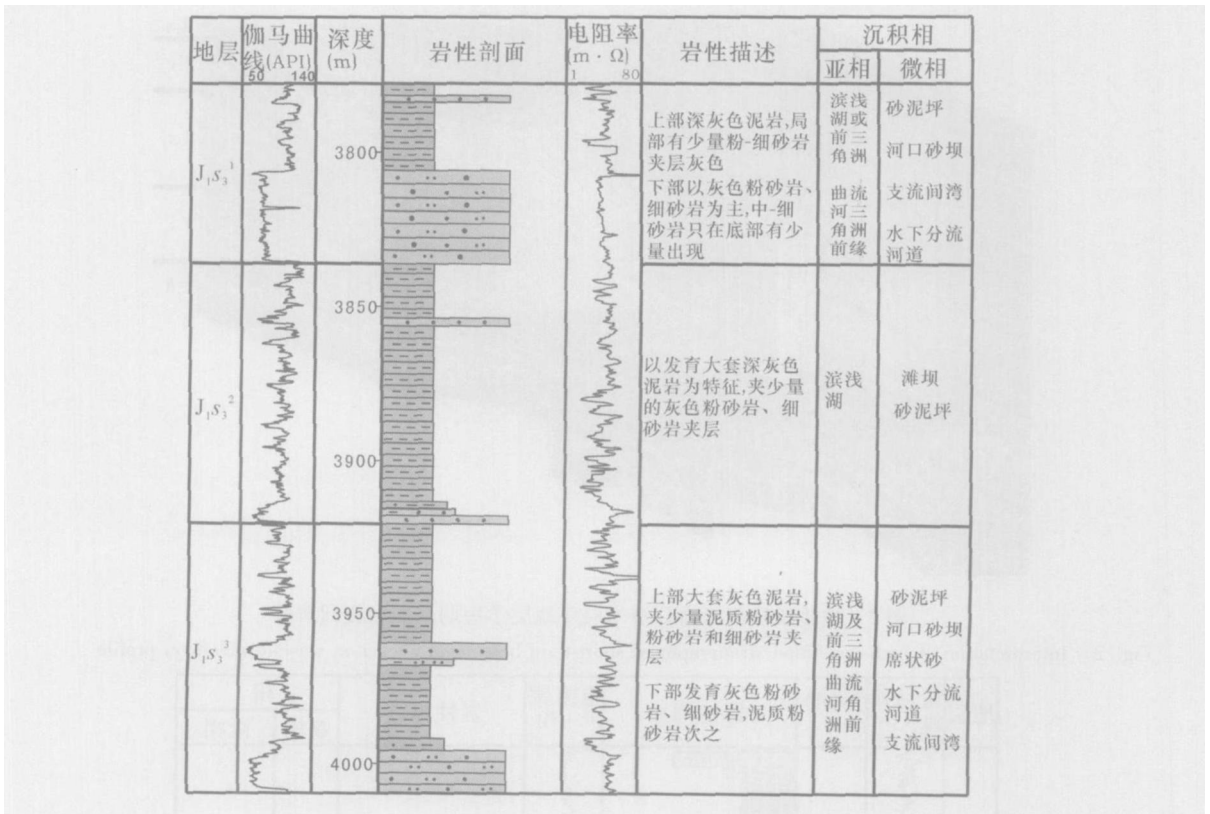 地层
伽马曲
线(API)
50 140
深度
(m)
岩性剖面
电阻率
(m · Ω)
1 80
岩性描述
沉积相
亚相
微相
J₁s₃¹
3800
上部深灰色泥岩,局
部有少量粉-细砂岩
夹层灰色
下部以灰色粉砂岩、
细砂岩为主,中-细
砂岩只在底部有少
量出现
滨浅
湖或
前三
角洲
曲流
河三
角洲
前缘
砂泥坪
河口砂坝
支流间湾
水下分流
河道
J₁s₃²
3850
3900
以发育大套深灰色
泥岩为特征,夹少量
的灰色粉砂岩、细
砂岩夹层
滨浅
湖
滩坝
砂泥坪
J₁s₃³
3950
4000
上部大套灰色泥岩,
夹少量泥质粉砂岩、
粉砂岩和细砂岩夹
层
下部发育灰色粉砂
岩、细砂岩,泥质粉
砂岩次之
滨浅
湖及
前三
角洲
曲流
河角
洲前
缘
砂泥坪
河口砂坝
席状砂
水下分流
河道
支流间湾